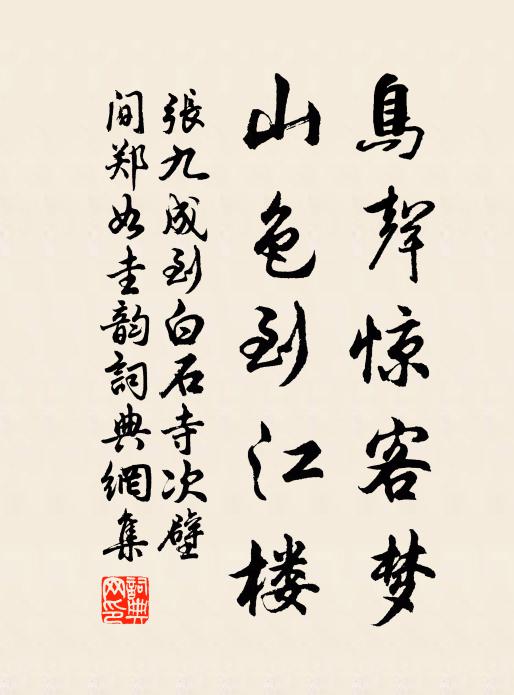 鳥聲惊客梦
山色到江楼
張九成到白石寺次壁
间郑如圭韵詞典網集
詞典网印